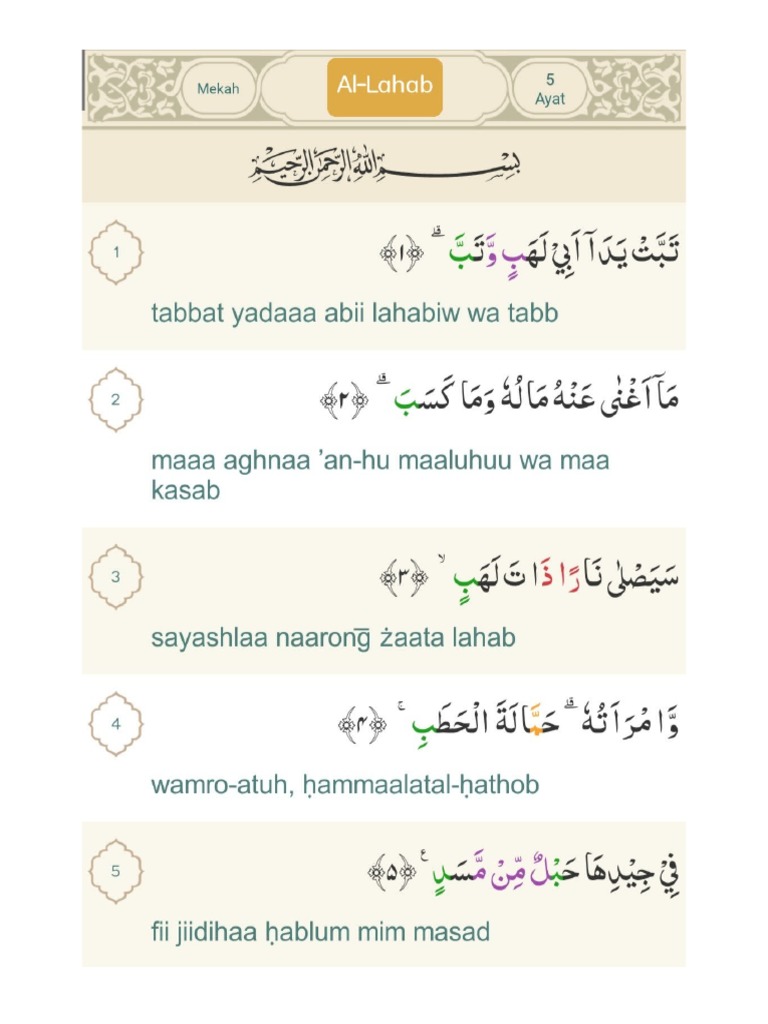 Mekah
Al-Lahab
5
Ayat
بِسْمِ اللّٰهِ الرَّحْمٰنِ الرَّحِيْمِ
1
تَبَّتْ يَدَآ اَبِيْ لَهَبٍ وَّتَبَّ ۗ ﴿١﴾
tabbat yadaaa abii lahabiw wa tabb
2
مَآ اَغْنٰى عَنْهُ مَالُهٗ وَمَا كَسَبَ ۗ ﴿٢﴾
maaa aghnaa ’an-hu maaluhuu wa maa
kasab
3
سَيَصْلٰى نَارًا ذَاتَ لَهَبٍ ۙ ﴿٣﴾
sayashlaa naarong̅ żaata lahab
4
وَّامْرَاَتُهٗ ۗ حَمَّالَةَ الْحَطَبِ ۚ ﴿۴﴾
wamro-atuh, ḥammaalatal-ḥathob
5
فِيْ جِيْدِهَا حَبْلٌ مِّنْ مَّسَدٍ ࣖ ﴿۵﴾
fii jiidihaa ḥablum mim masad